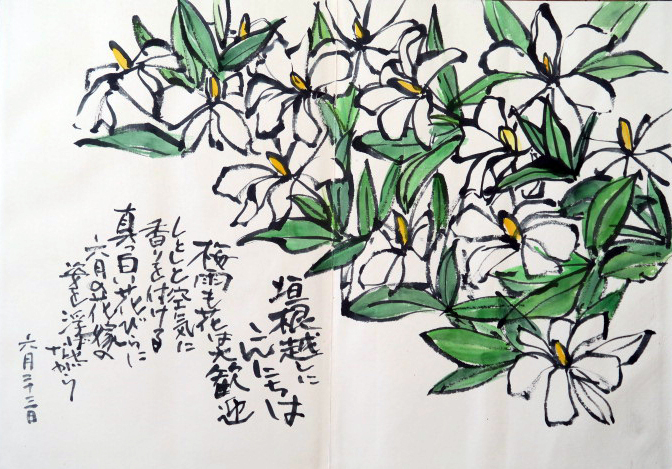 垣根越しに
こんにちは
梅雨も花は大歓迎
しとしと空気に
香りを付ける
真っ白い花びらに
六月の花嫁の
姿を浮ばせ
ながら
六月二十三日